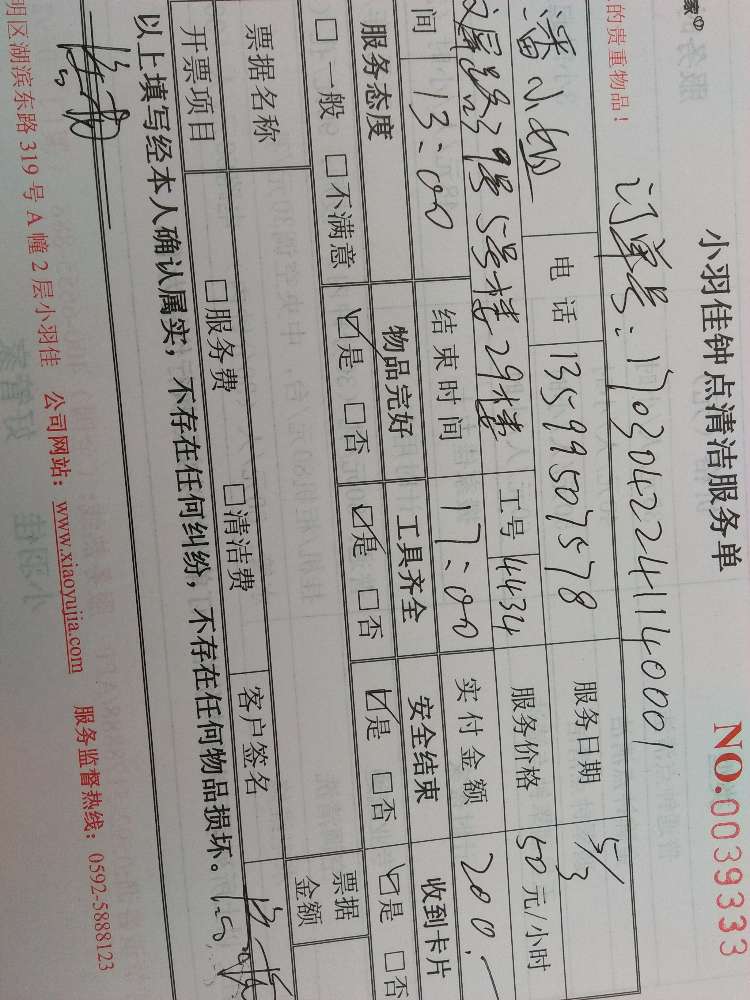 家
小羽佳钟点清洁服务单
NO.0039333
的贵重物品！
订单号：1703042241140001
潘小姐 电话 13599507578 服务日期 5/3
39号5号楼29楼 工号 4434 服务价格 50元/小时
间 13:00 结束时间 17:00 实付金额 200.-
服务态度 物品完好 工具齐全 安全结束 收到卡片
□一般 □不满意 ☑是 □否 ☑是 □否 ☑是 □否 ☑是 □否
票据名称 票据金额
开票项目 □服务费 □清洁费 客户签名
以上填写经本人确认属实，不存在任何纠纷，不存在任何物品损坏。
明区湖滨东路319号A幢2层小羽佳 公司网站：www.xiaoyujia.com 服务监督热线：0592-5888123